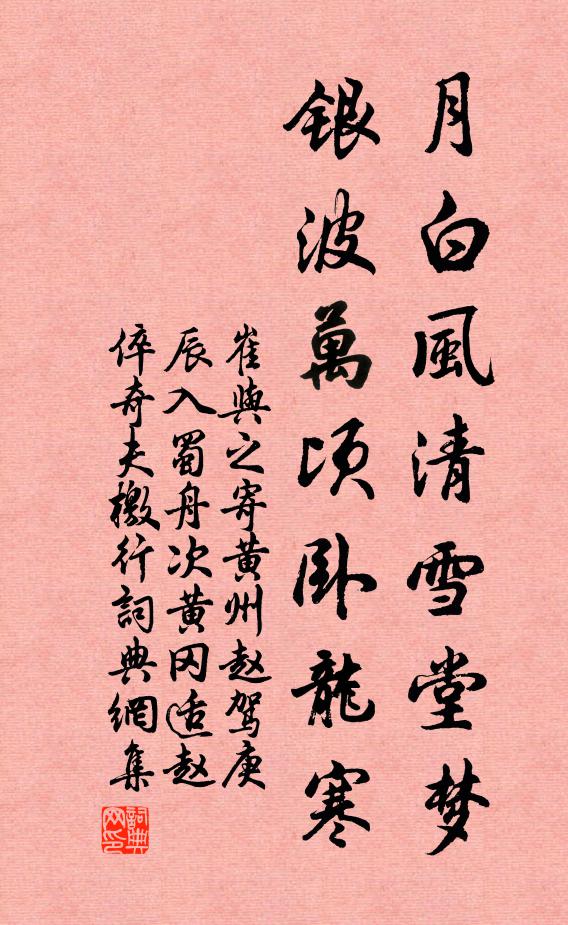 月白風清雪堂梦
銀波萬頃卧龍寒
崔與之寄黄州赵駕庚
辰入蜀舟次黄冈适赵
倅奇夫檄行詞典網集
詞典网印